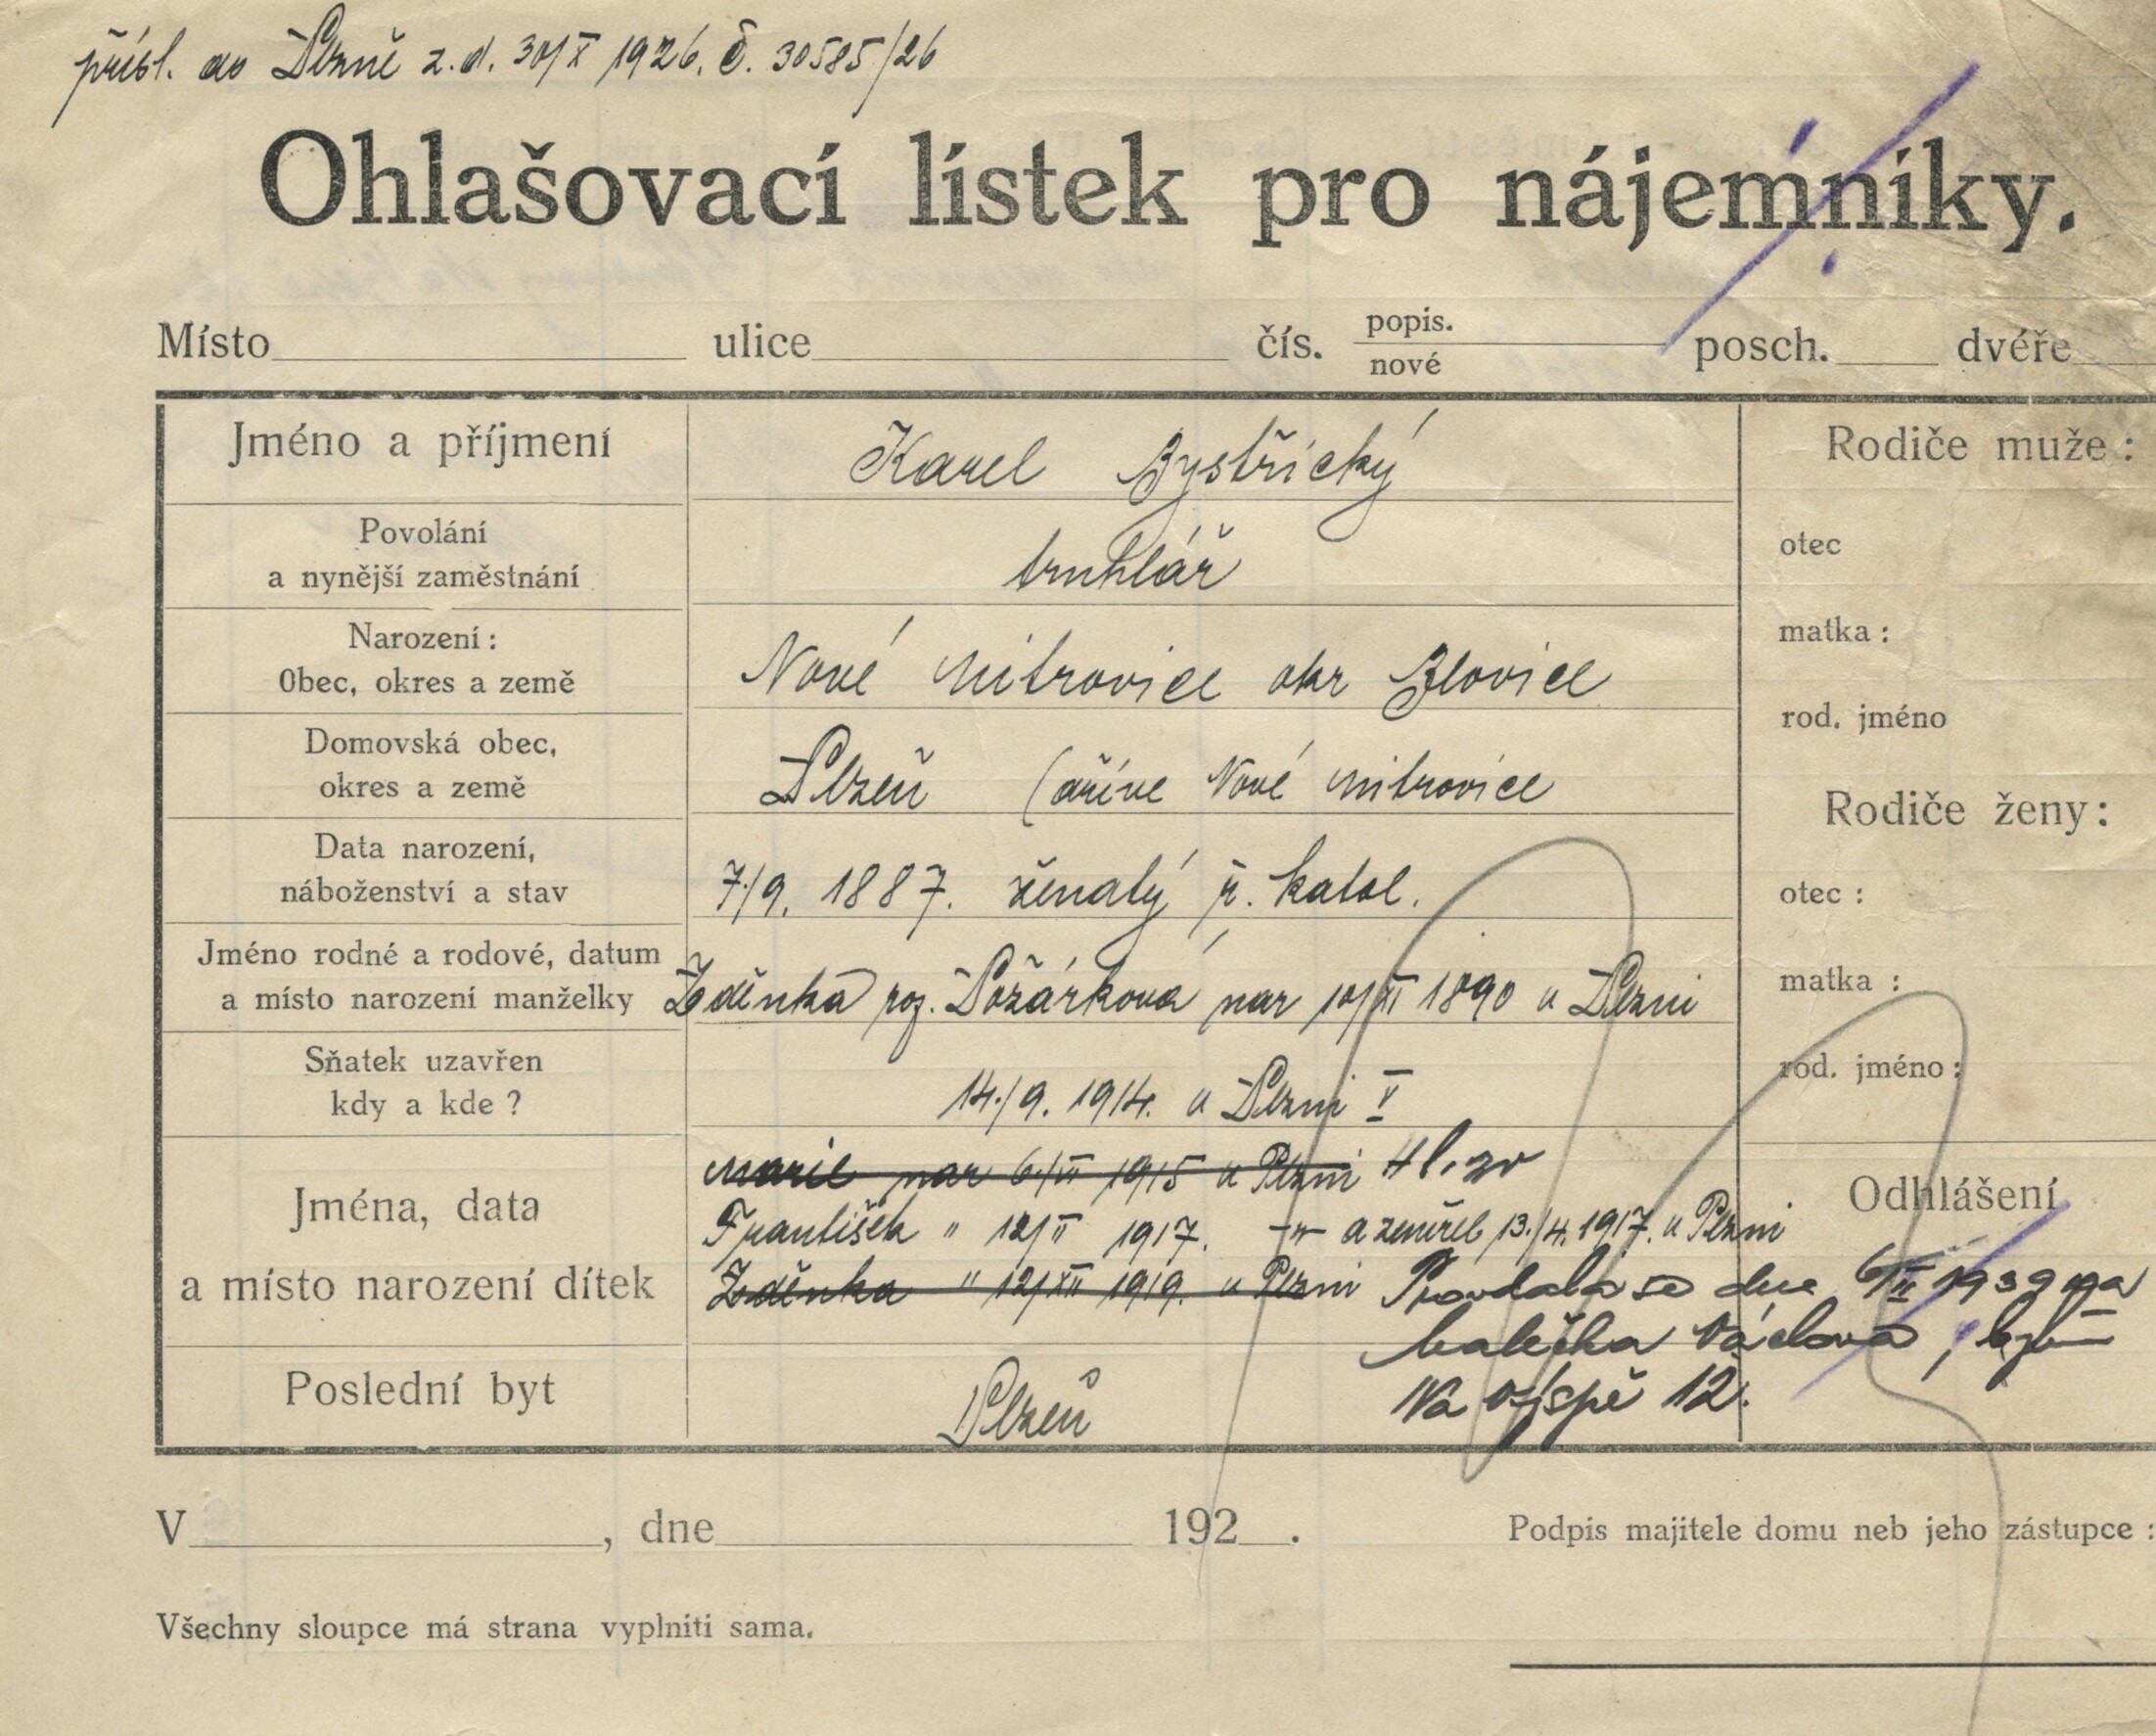 přísl. do Plzně z. d. 30/X 1926. č. 30585/26
Ohlašovací lístek pro nájemníky.
Místo ulice čís. popis. nové posch. dvéře
Jméno a příjmení
Karel Bystřický
Povolání
a nynější zaměstnání
truhlář
Narození:
Obec, okres a země
Nové Mitrovice okr Blovice
Domovská obec,
okres a země
Plzeň (dříve Nové Mitrovice
Data narození,
náboženství a stav
7./9. 1887. ženatý ř. katol.
Jméno rodné a rodové, datum
a místo narození manželky
Zděnka roz. Požárková nar 10/XI 1890 v Plzni
Sňatek uzavřen
kdy a kde?
14./9. 1914. v Plzni V
Jména, data
a místo narození dítek
Marie nar 6./VI 1915 v Plzni
František " 12/II 1917. -"- a zemřel 13./4. 1917. v Plzni
Zděnka " 12/XII 1919. v Plzni Provdala se dne 6/II 1939 za
Václava,
Na 12.
Poslední byt
Plzeň
Rodiče muže:
otec
matka:
rod. jméno
Rodiče ženy:
otec:
matka:
rod. jméno:
Odhlášení
V , dne 192 .
Podpis majitele domu neb jeho zástupce:
Všechny sloupce má strana vyplniti sama.